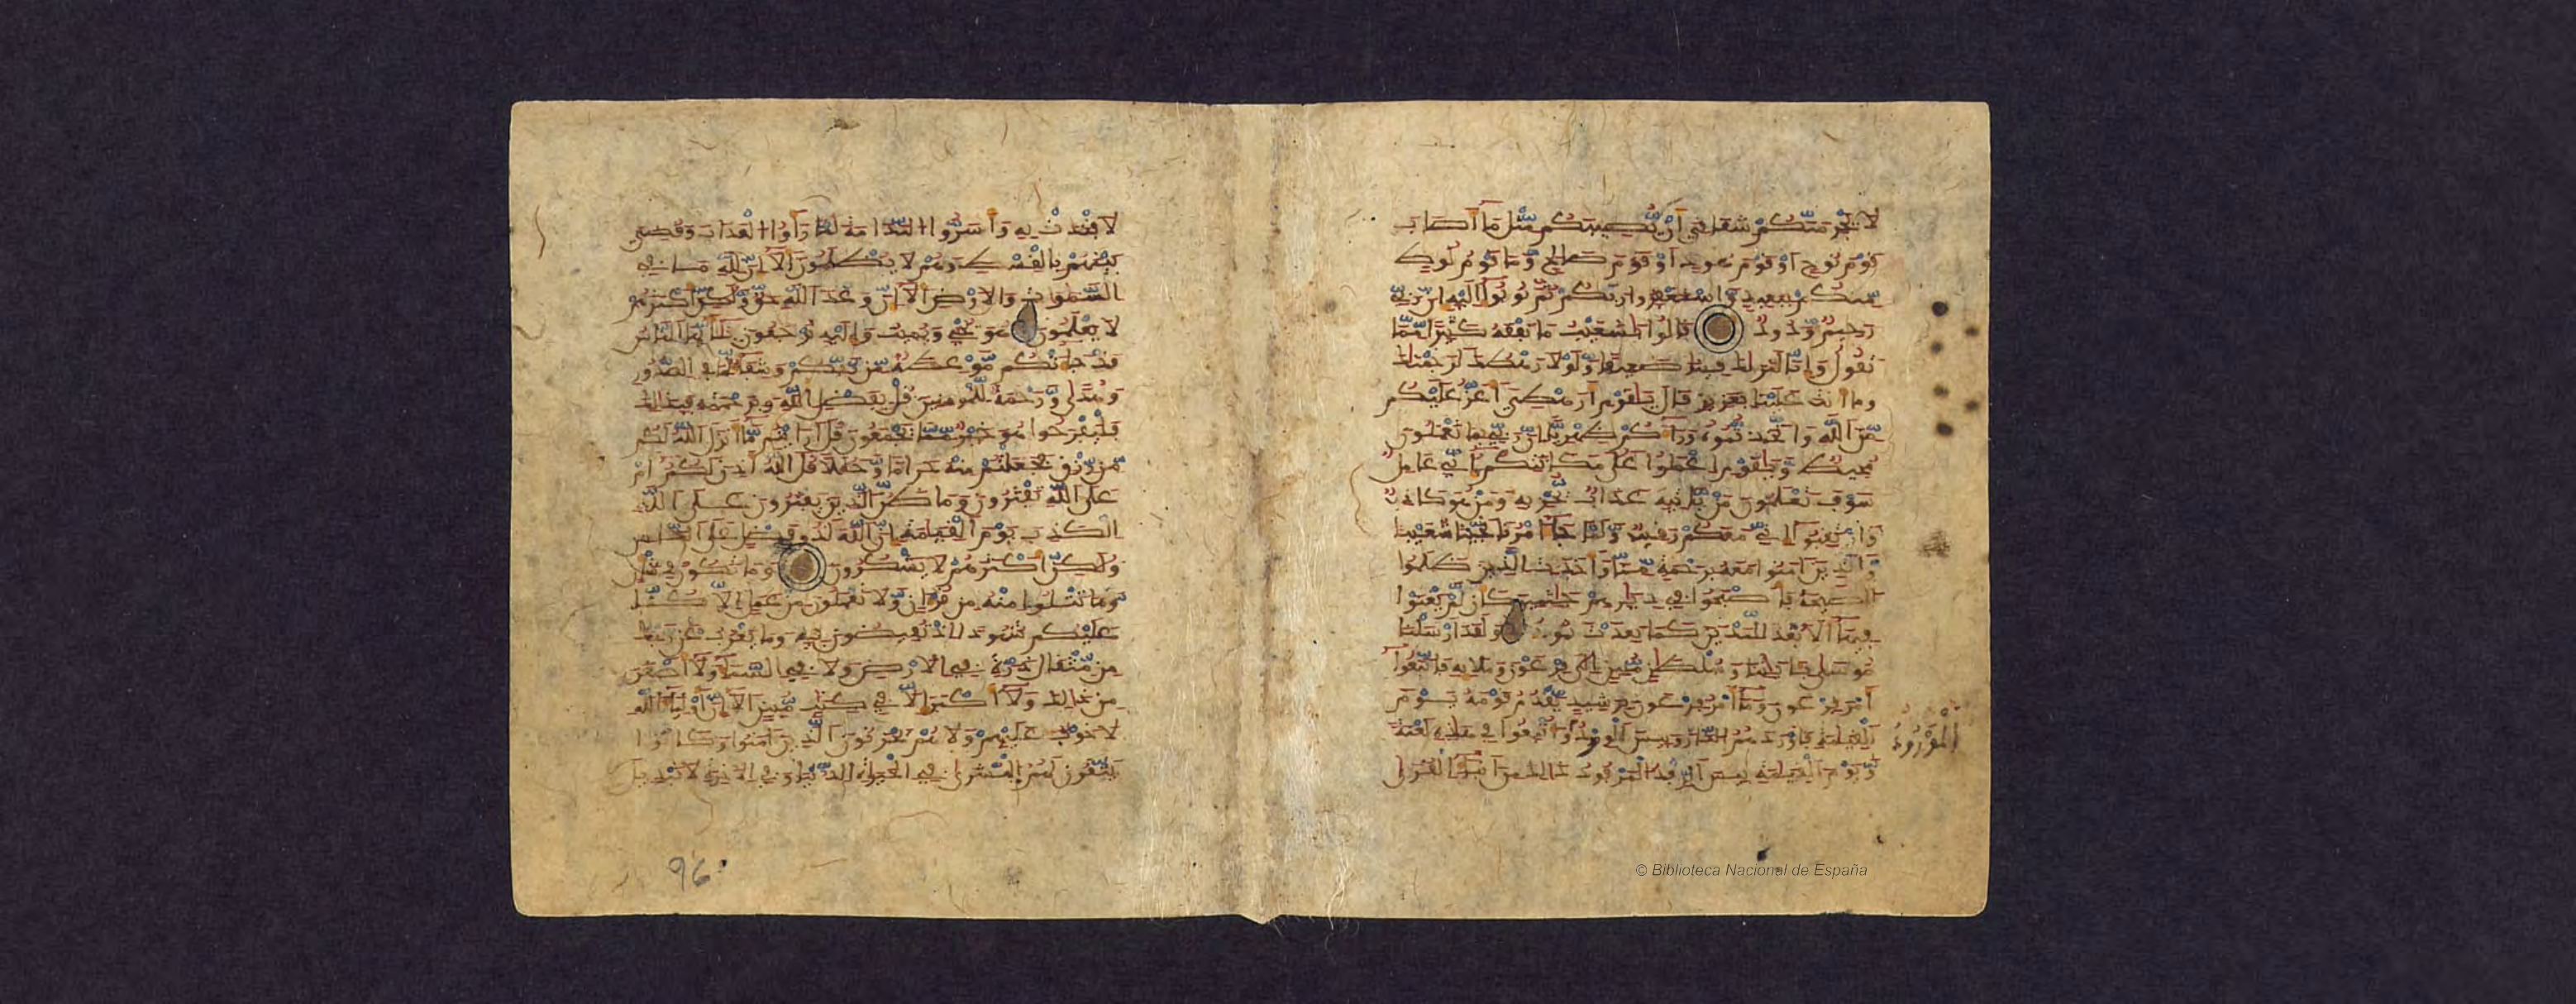 لا يجرمنكم شقاقي أن يصيبكم مثل ما أصاب
قوم نوح أو قوم هود أو قوم صالح وما قوم لوط
منكم ببعيد واستغفروا ربكم ثم توبوا إليه إن ربي
رحيم ودود قالوا يشعيب ما نفقه كثيرا مما
تقول وإنا لنراك فينا ضعيفا ولولا رهطك لرجمنك
وما أنت علينا بعزيز قال يقوم أرهطي أعز عليكم
من الله واتخذتموه وراءكم ظهريا إن ربي بما تعملون
محيط ويقوم اعملوا على مكانتكم إني عامل
سوف تعلمون من يأتيه عذاب يخزيه ومن هو كاذب
وارتقبوا إني معكم رقيب ولما جاء أمرنا نجينا شعيبا
والذين آمنوا معه برحمة منا وأخذت الذين ظلموا
الصيحة فأصبحوا في ديرهم جثمين كأن لم يغنوا
فيها ألا بعدا لمدين كما بعدت ثمود ولقد أرسلنا
موسى بايتنا وسلطن مبين إلى فرعون وملايه فاتبعوا
أمر فرعون وما أمر فرعون برشيد يقدم قومه يوم
القيمة فأوردهم النار وبيس الورد وأتبعوا في هذه لعنة
المورود
ويوم القيمة بيس الرفد المرفود ذلك من أنباء القرى
لافتدت به وأسروا الندامة لما رأوا العذاب وقضي
بينهم بالقسط وهم لا يظلمون ألا إن لله ما في
السموات والأرض ألا إن وعد الله حق ولكن أكثرهم
لا يعلمون هو يحي ويميت وإليه ترجعون يأيها الناس
قد جاءتكم موعظة من ربكم وشفاء لما في الصدور
وهدى ورحمة للمومنين قل بفضل الله وبرحمته فبذلك
فليفرحوا هو خير مما يجمعون قل أرأيتم ما أنزل الله لكم
من رزق فجعلتم منه حراما وحللا قل آلله أذن لكم أم
على الله تفترون وما ظن الذين يفترون على الله
الكذب يوم القيامة إن الله لذو فضل على الناس
ولكن أكثرهم لا يشكرون وما تكون في شأن
وما تتلوا منه من قرءان ولا تعملون من عمل إلا كنا
عليكم شهودا إذ تفيضون فيه وما يعزب عن ربك
من مثقال ذرة في الأرض ولا في السماء ولا أصغر
من ذلك ولا أكبر إلا في كتب مبين ألا إن أولياء الله
لا خوف عليهم ولا هم يحزنون الذين آمنوا وكانوا
يتقون لهم البشرى في الحيوة الدنيا وفي الآخرة لا تبديل
96
© Biblioteca Nacional de España